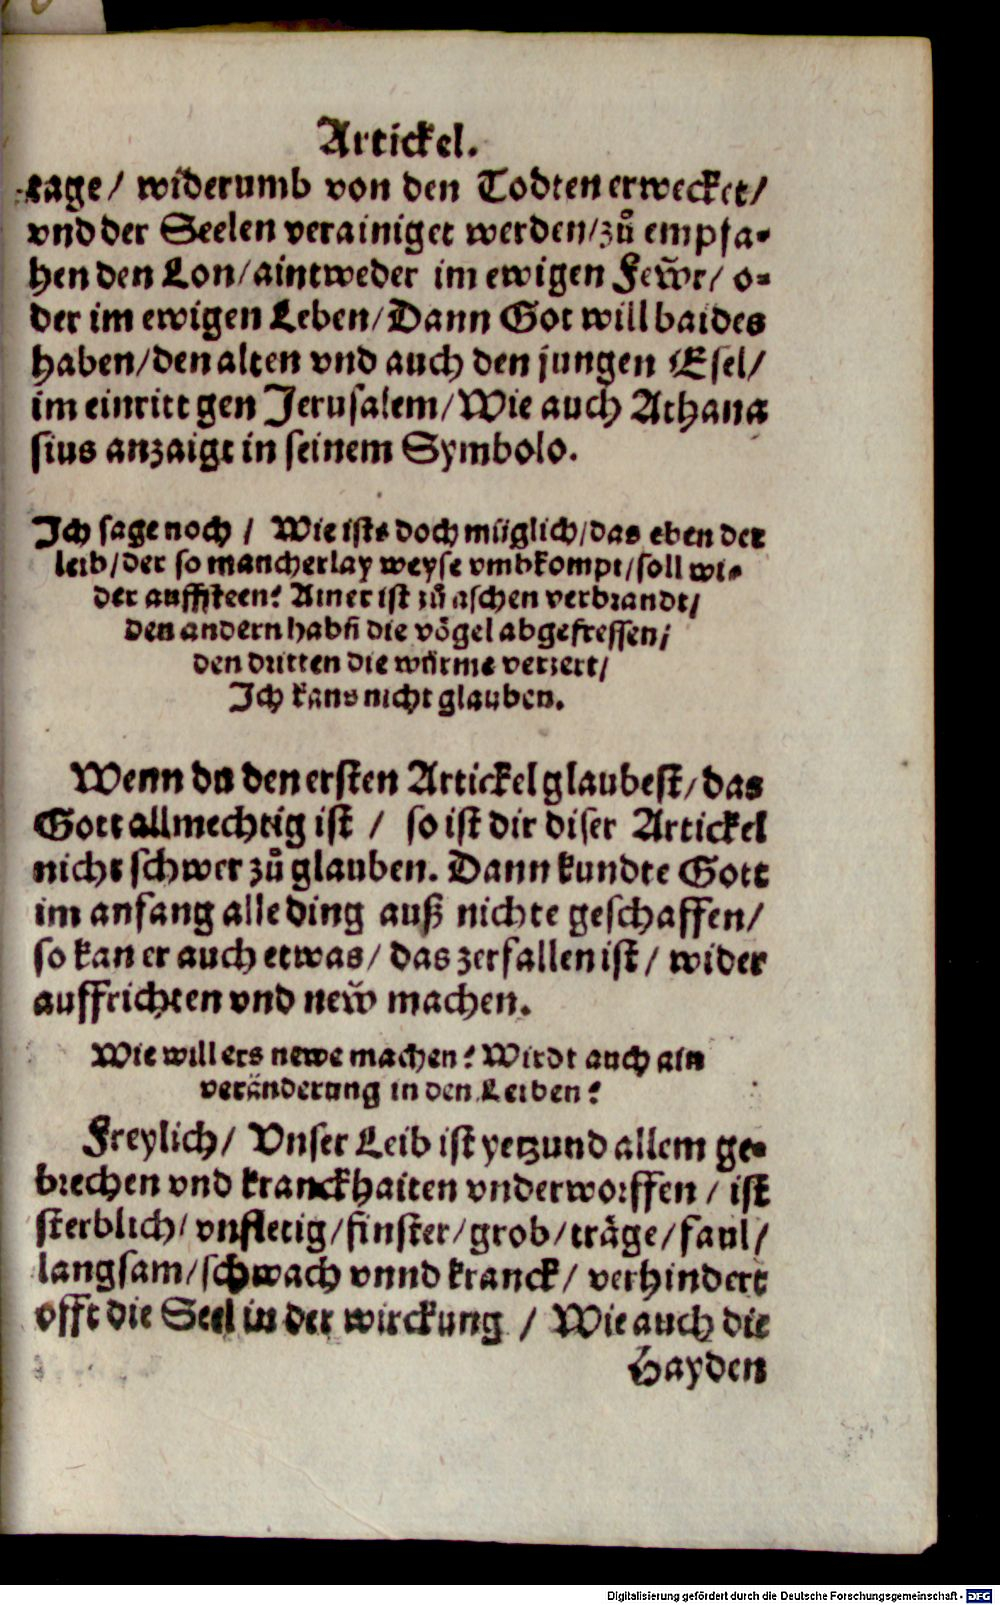 Artickel.
tage/ widerumb von den Todten erwecket/
vnd der Seelen verainiget werden/zů empfa-
hen den Lon/aintweder im ewigen Fewr̃/ o-
der im ewigen Leben/Dann Got will baides
haben/den alten vnd auch den jungen Esel/
im einritt gen Jerusalem/Wie auch Athana
sius anzaigt in seinem Symbolo.
Ich sage noch / Wie ists doch müglich/das eben der
leib/der so mancherlay weyse vmbkompt/soll wi-
der auffsteen? Ainer ist zů aschen verbrandt/
den andern habñ die vögel abgefressen/
den dritten die würme verzert/
Ich kans nicht glauben.
Wenn du den ersten Artickel glaubest/das
Gott allmechtig ist / so ist dir diser Artickel
nicht schwer zů glauben. Dann kundte Gott
im anfang alle ding auß nichte geschaffen/
so kan er auch etwas/ das zerfallen ist / wider
auffrichten vnd new̃ machen.
Wie will ers newe machen? Wirdt auch ain
veränderung in den Leiben?
Freylich/ Vnser Leib ist yetzund allem ge-
brechen vnd kranckhaiten vnderworffen / ist
sterblich/ vnfletig/finster/grob/träge/faul/
langsam/schwach vnnd kranck/ verhindert
offt die Seel in der wirckung / Wie auch die
Hayden
Digitalisierung gefördert durch die Deutsche Forschungsgemeinschaft - DFG